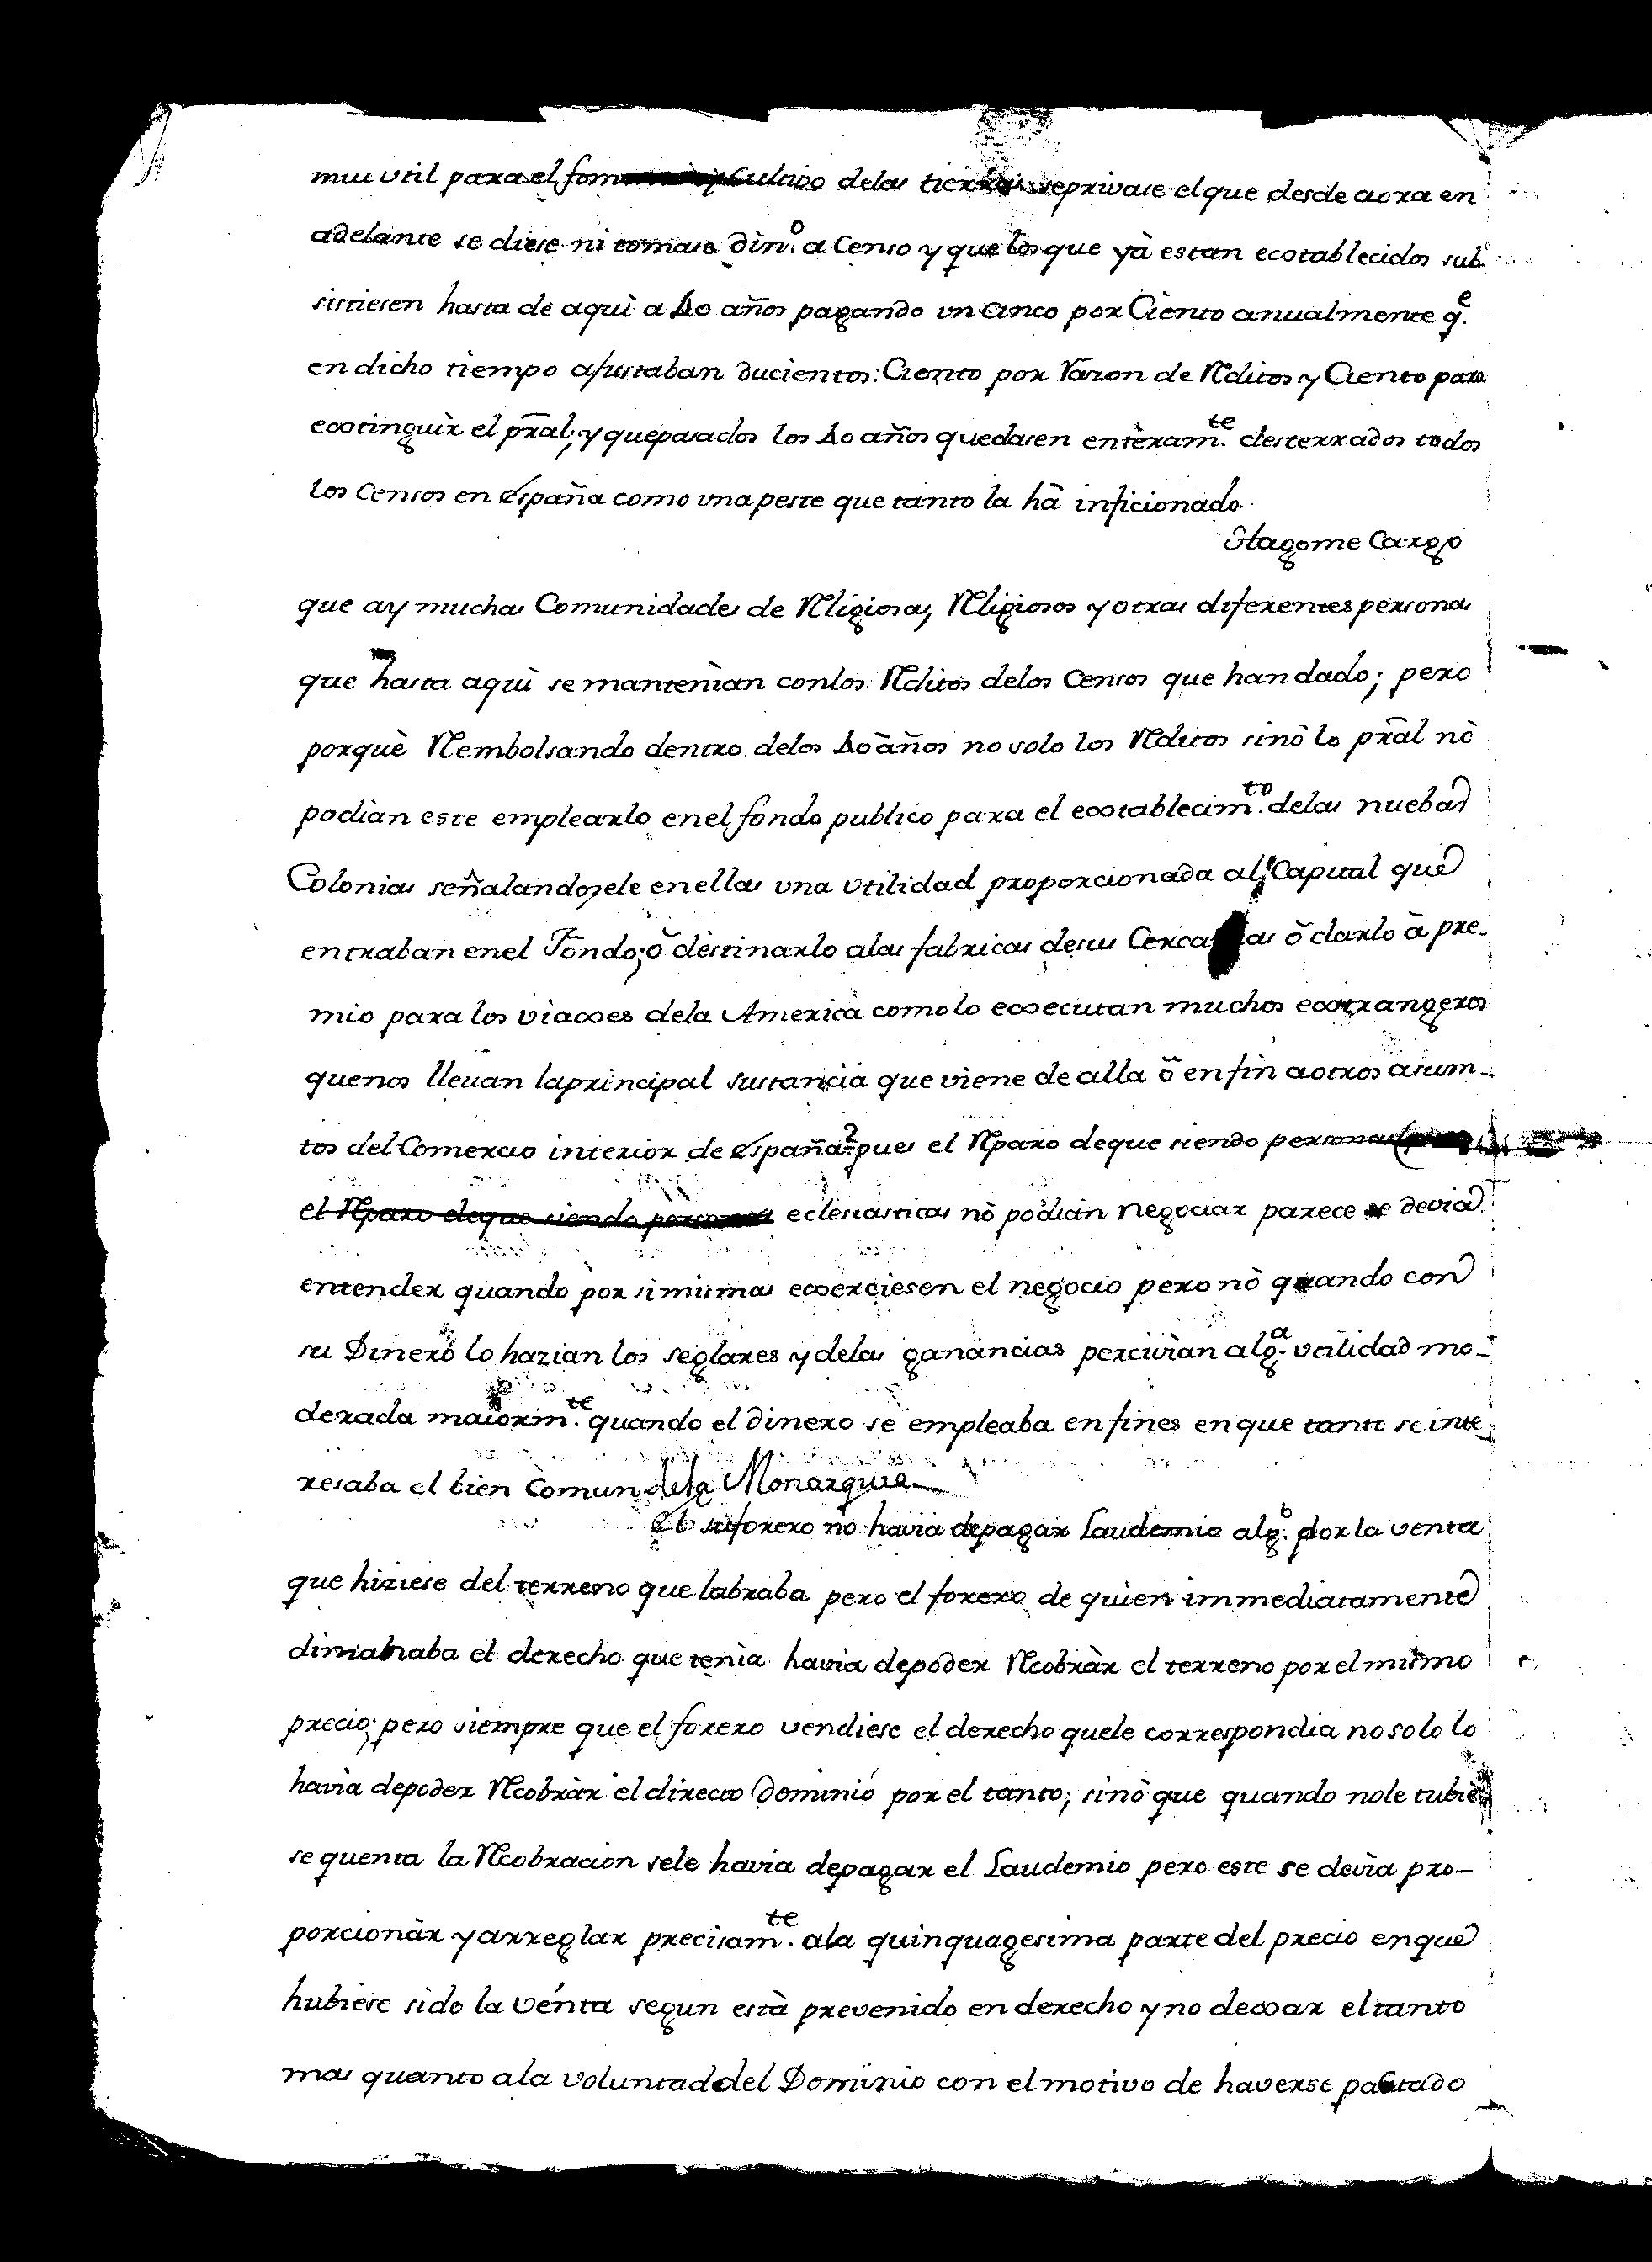 mui util para el fomento y Cultivo delas tierras se privase el que desde aora en
adelante se diese ni tomase din.º a Censo y que los que yà estan extablecidos sub
sistiesen hasta de aquì a 40 años pagando un cinco por Ciento anualmente q.e
en dicho tiempo ajustaban ducientos: Ciento por Razon de Reditos y Ciento para
extinguìr el pral, y que pasados los 40 años quedasen enteram.te desterrados todos
los Censos en España como una peste que tanto la hà inficionado.
Hagome Cargo
que ay muchas Comunidades de Religiosas, Religiosos y otras diferentes personas
que hasta aquì se mantenìan con los Reditos delos Censos que han dado; pero
porquè Reembolsando dentro delos 40 años no solo los Reditos sinò lo pral nò
podìan este emplearlo en el fondo publico para el extablecim.to delas nuebas
Colonias señalandosele en ellas una utilidad proporcionada al Capital que
entraban en el Fondo; ò destinarlo alas fabricas desus Cercanias ò darlo à pre-
mio para los viaxes dela America como lo executan muchos extrangeros
quenos llevan la principal sustancia que viene de alla ò en fin a otros asum-
tos del Comercio interior de España? pues el Reparo deque siendo personas
el Reparo deque siendo personas eclesiasticas nò podian negociar parece se devia
entender quando por si mismas exerciesen el negocio pero nò quando con
su Dinero lo hazian los seglares y delas ganancias percivian alg.a utilidad mo-
derada maiorm.te quando el dinero se empleaba en fines en que tanto se inte
resaba el bien Comun dela Monarquia
El suforero no havia depagar Laudemio alg.o por la venta
que hiziese del terreno que labraba pero el forero de quien immediatamente
dimanaba el derecho que tenìa havia depoder Recobràr el terreno por el mismo
precio; pero siempre que el forero vendiese el derecho quele correspondia no solo lo
havìa depoder Recobràr el directo Dominio por el tanto; sinò que quando nole tubie
se quenta la Recobracion sele havia depagar el Laudemio pero este se devìa pro-
porcionàr y arreglar precisam.te ala quinquagesima parte del precio en que
hubiese sido la vénta segun està prevenido en derecho y no dexar el tanto
mas quanto ala voluntad del Dominio con el motivo de haverse pactado